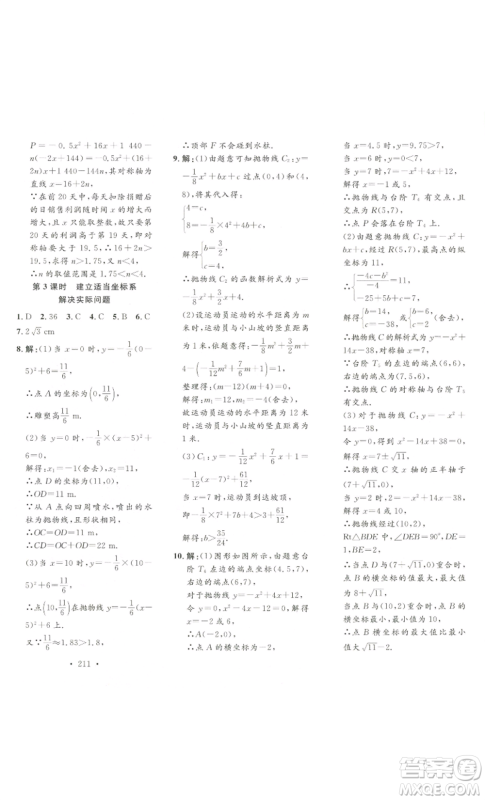 P=−0.5x²+16x+1 440−
n(−2x+144)=−0.5x²+
(16+2n)x+1 440−144n,对称
直线 x=16+2n.
∵在前 20 天中,每天扣除捐赠后
的日销售利润随时间 x 的增大而
增大,且 x 只能取整数,故只要第
20 天的利润高于第 19 天,即对
称轴要大于 19.5,∴16+2n>
19.5,
∴n 的取值范围是 1.75<n<9.
第 3 课时 建立适当坐标系
解决实际问题
1. D 2. 36 3. C 4. C 5. B 6. C
7. 2√3 cm
8. 解:(1)当 x=0 时,y=−1/6(0−
5)²+6=11/6,
∴点 A 的坐标为(0,11/6),
∴雕塑高 11/6 m.
(2)当 y=0 时,−1/6(x−5)²
+6=0,
解得:x₁=−1(舍去),x₂=11,
∴点 D 的坐标为(11,0),
∴OD=11 m.
∵从 A 点向四周喷水,喷出的水
柱为抛物线,且形状相同,
∴OC=OD=11 m,
∴CD=OC+OD=22 m.
(3)当 x=10 时,y=−1/6(10−
5)²+6=11/6,
∴点(10,11/6)在抛物线 y=−1/6(x−
5)²+6 上.
又∵11/6≈1.83>1.8,
• 211 •
∴顶部 F 不会碰到水柱.
9. 解:(1)由题意可知抛物线 C₂:y=
−1/8x²+bx+c 过点(0,4)和(4,
8),将其代入得:
{4=c,
8=−1/8×4²+4b+c,
解得{b=3/2,
c=4.
∴抛物线 C₂ 的函数解析式为:y=
−1/8x²+3/2x+4.
(2)设运动员运动的水平距离为 m
米时,运动员与小山坡的竖直距离
为 1 米,依题意得:−1/8m²+3/2m+
4−(−1/12m²+7/6m+1)=1,
整理得:(m−12)(m+4)=0,
解得:m₁=12,m₂=−4(舍去),
故运动员运动的水平距离为 12 米
时,运动员与小山坡的竖直距离为
1 米.
(3)C₁:y=−1/12x²+7/6x+1=
−1/12(x−7)²+61/12,
当 x=7 时,运动员到达坡顶,
即−1/8×7²+7b+4>3+61/12,
解得:b>35/24.
10. 解:(1)图形如图所示,由题意台
阶 T₄ 左边的端点坐标(4.5,7),
右边的端点(6,7),
对于抛物线 y=−x²+4x+12,
令 y=0,x²−4x−12=0,解得
x=−2 或 6,
∴A(−2,0),
∴点 A 的横坐标为−2,
当 x=4.5 时,y=9.75>7,
当 x=6 时,y=0<7,
当 y=7 时,7=−x²+4x+12,
解得 x=−1(舍去)或 5,
∴抛物线与台阶 T₄ 有交点,设交
点为 R(5,7),
∴点 P 会落在台阶 T₄ 上.
(2)由题意抛物线 C:y=−x²+
bx+c,经过 R(5,7),最高点的纵
坐标为 11,
∴{(−4c−b²)/−4=11,
−25+5b+c=7,
解得{b=14,
c=−38或{b=6,
c=2(舍去),
∴抛物线 C 的解析式为 y=
−x²+14x−38,
对称轴为直线 x=7,
∵台阶 T₅ 的左边的端点(6,6),
右边的端点为(7.5,6),
∴抛物线 C 的对称轴与台阶 T₅
有交点.
(3)对于抛物线 C:y=−x²+14x−38,
令 y=0,得到 x²−14x+38=0,
解得 x=7±√11,
∴抛物线 C 交 x 轴的正半轴于
点(7+√11,0),
当 y=2 时,2=−x²+14x−38,
解得 x=4 或 10,
∴抛物线经过(10,2),
Rt△BDE 中,∠DEB=90°,DE=
1,BE=2,
∴当点 D 与(7+√11,0)重合时,
点 B 的横坐标的值最大,最大值
为 8+√11,
当点 B 与(10,2)重合时,点 B 的
横坐标最小,最小值为 10,
∴点 B 横坐标的最大值比最小
值大√11−2.
答案圈
MXQE.COM